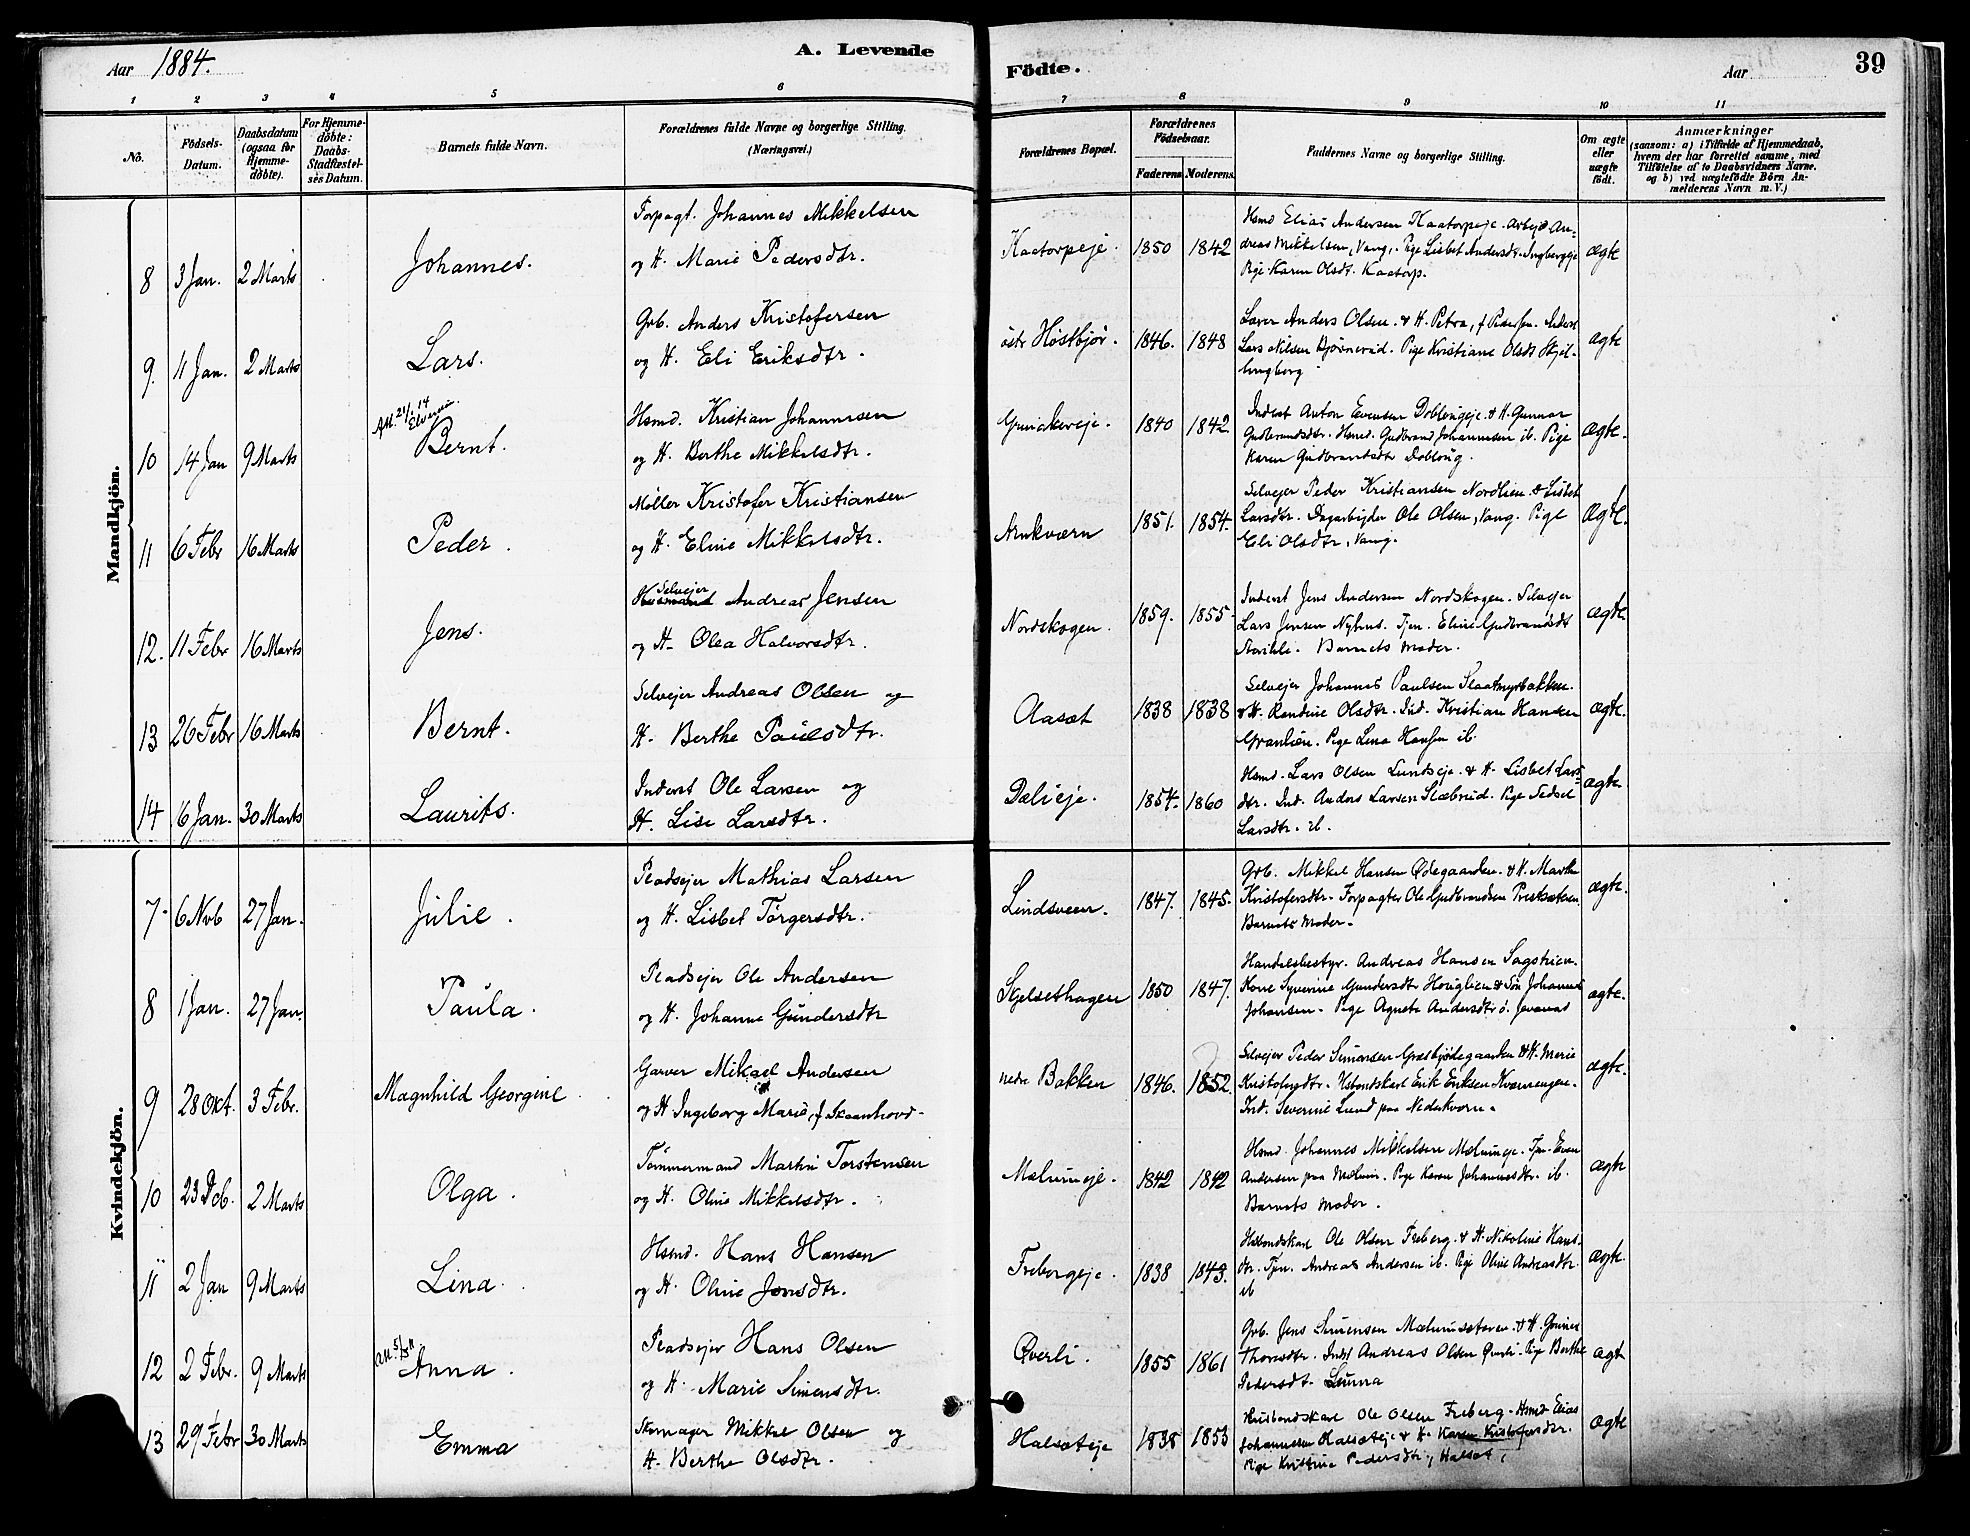 Aar 1884.
A. Levende
Födte.
Aar
39
1 2 3 4 5 6 7 8 9 10 11
No.
Födsels-Datum.
Daabsdatum (ogsaa for Hjemmedöbte).
For Hjemmedöbte: Daabs-Stadfæstelses Datum.
Barnets fulde Navn.
Forældrenes fulde Navne og borgerlige Stilling. (Næringsvei.)
Forældrenes Bopæl.
Forældrenes Födselsaar.
Faderens Moderens
Faddernes Navne og borgerlige Stilling.
Om ægte eller uægte födt.
Anmærkninger
(saasom: a) i Tilfælde af Hjemmedaab, hvem der har forrettet samme, med Tilföielse af to Daabsvidners Navne, og b) ved uægtefödte Börn Anmelderens Navn m. V.)
Mandkjön.
8 3 Jan. 2 Marts Johannes.
Forpagt. Johannes Mikkelsen
og H. Marie Pedersdtr.
Kaatorpeje. 1850 1842
Hsmd Elias Andersen Kaatorpeje. Arbejd. An-
dreas Mikkelsen, Vang. Pige Lisbet Andersdt. Ingbergeje
Pige Karen Olsdt. Kaatorp.
ægte
9. 11 Jan. 2 Marts Lars.
Grb. Anders Kristofersen
og H. Eli Eriksdtr.
östr Höstbjör. 1846. 1848
Anders Olsen. & H. Petra, f. Pedersen.
Lars Nilsen Björnerud. Pige Kristiane Olsdt Skjel-
lingberg
ægte
10 14 Jan 9 Marts Att. 21/1 14 Elverum. Bernt.
Hsmd. Kristian Johannesen
og H. Berthe Mikkelsdtr.
1840 1842.
Inderst Anton Evensen Doblougeje. & H. Gunnar
Gudbrandsdtr. Hsmd. Gudbrand Johannesen ib. Pige
Karen Gudbrandsdtr Doblong.
Ægte.
11 6 Febr 16 Marts Peder.
Möller Kristofer Kristiansen
og H. Eline Mikkelsdtr.
Arnkværn 1851. 1854.
Selvejer Peder Kristiansen Nordlien. & Lisbet
Larsdtr. Dagarbejder Ole Olsen, Vang. Pige
Eli Olsdtr, Vang.
Ægte.
12. 11 Febr 16 Marts Jens.
Husmand Selvejer Andreas Jensen
og H. Olea Halvorsdtr.
Nordskogen. 1859. 1855.
Inderst Jens Andersen Nordskogen. Selvejer
Lars Jensen Nyhus. Tjen. Eline Gudbrandsdt
Barnets Moder.
ægte.
13 26 Febr 16 Marts Bernt.
Selvejer Andreas Olsen og
H. Berthe Paulsdtr.
Aaset 1838 1838
Selvejer Johannes Paulsen Slaatmyrbakken.
& H. Randine Olsdtr. Ind. Kristian Hansen
Granlien. Pige Lena Hansen ib.
ægte.
14 6 Jan. 30 Marts Laurits.
Inderst Ole Larsen og
H. Lise Larsdtr.
Dælieje. 1854. 1860
Hsmd. Lars Olsen Lundseje. & H. Lisbet Lars-
dtr. Ind. Anders Larsen Slæbrud. Pige Sedsel
Larsdtr. ib.
ægte.
Kvindekjön.
7. 6 Nvb 27 Jan. Julie.
Pladsejer Mathias Larsen
og H. Lisbet Torgersdtr.
Lindsveen. 1847. 1845.
Grb. Mikkel Hansen Ödegaarden. & H. Marthe
Kristofersdtr. Forpagter Ole Gudbrandsen Prestsæteren
Barnets Moder.
ægte.
8 1 Jan. 27 Jan. Paula.
Pladsejer Ole Andersen
og H. Johanne Gundersdtr
Skjelsethagen 1850 1847.
Handelsbestyr. Andreas Hansen Sagstuen.
Kone Syverine Gundersdtr Houglien & Sön Johannes
Johansen. Pige Agnete Andersdtr ö. Jevanod
ægte.
9 28 Okt. 3 Febr. Magnhild Georgine.
Garver Mikael Andersen
og H Ingeborg Marie, f. Skaanhovd.
nedre Bakken 1846. 1852.
Selvejer Peder Simensen Græsbjödegaarden & H. Marie
Kristofersdtr. Husbondskarl Erik Eriksen Kværnengen.
Ind. Severine Lund paa Nederkværn.
ægte.
10 23 Dcb. 2 Marts Olga.
Tömmermand Martin Torstensen
og H. Oline Mikkelsdtr.
Mælumeje. 1842 1842
Hsmd. Johannes Mikkelsen Mælumeje. Tjen. Even
Andersen paa Mælum. Pige Karen Johannesdtr. ib.
Barnets Moder.
ægte
11 2 Jan 9 Marts Lina.
Hsmd. Hans Hansen
og H. Oline Jensdtr.
Frebergeje. 1838 1843.
Husbondskarl Ole Olsen Freberg. & H. Nikoline Hans-
dtr. Tjen. Andreas Andersen ib. Pige Oline Andreasdtr.
ib
ægte.
12 2 Febr. 9 Marts Att 5/5 11 Anna.
Pladsejer Hans Olsen
og H. Marie Simensdtr.
Överli. 1855 1861
Grb. Jens Simensen Mælumsetaren. & H. Gunnes
Thoresdtr. Inds Andreas Olsen Överli. Pige Berthe
Pedersdt. Lunna
ægt
13 29 Febr 30 Marts Emma
Skomager Mikkel Olsen og
H. Berthe Olsdtr.
Halsæteje 1838 1853
Husbondskarl Ole Olsen Freberg. Hsmd Elias
Johannesen Halsæteje & H. Karen Kristofersdtr.
Pige Kristine Pedersdtr, Halset,
ægte